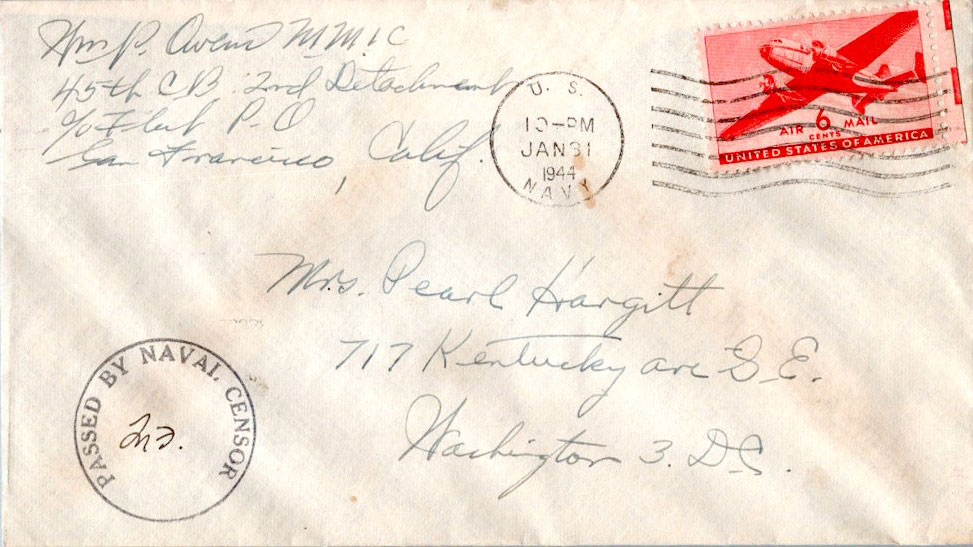 Wm P. Owens MM1C
45th CB 2nd Detachment
c/o Fleet P-O
San Francisco, Calif.
U. S.
10-PM
JAN 31
1944
NAVY
AIR 6 MAIL
CENTS
UNITED STATES OF AMERICA
Mrs. Pearl Hargitt
717 Kentucky ave S.E.
Washington 3. D.C.
PASSED BY NAVAL CENSOR